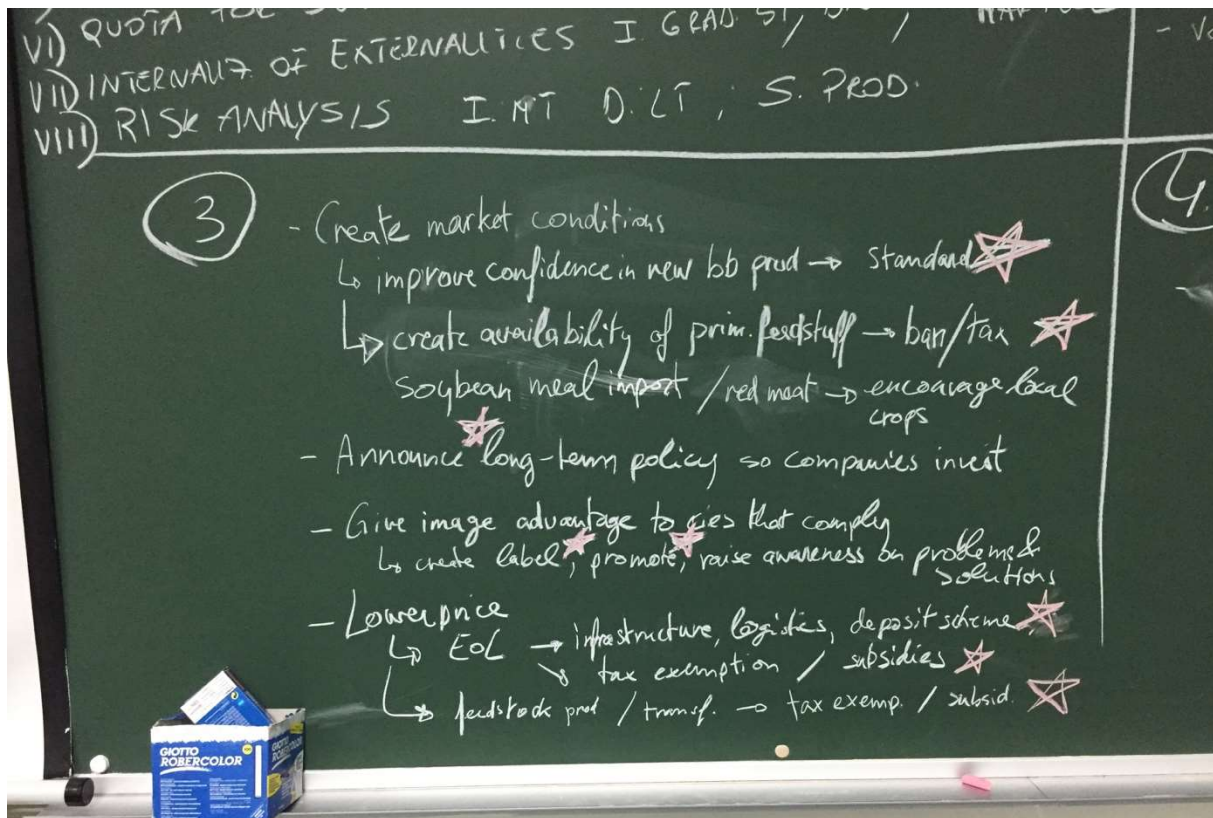 VI) QUOTA FOR
VII) INTERNALIZ. OF EXTERNALITICES I. GRAD. ST,
VIII) RISK ANALYSIS I. MT D. LT, S. PROD.
3
- Create market conditions
↳ improve confidence in new bb prod → standard
↳ create availability of prim. feedstuff → ban/tax
soybean meal import / red meat → encourage local
crops
- Announce long-term policy so companies invest
- Give image advantage to cies that comply
↳ create label, promote, raise awareness on problems &
solutions
- Lower price
↳ EoL → infrastructure, logistics, deposit scheme,
↘ tax exemption / subsidies
↳ feedstock prod / transf. → tax exemp. / subsid.
4.
GIOTTO
ROBERCOLOR